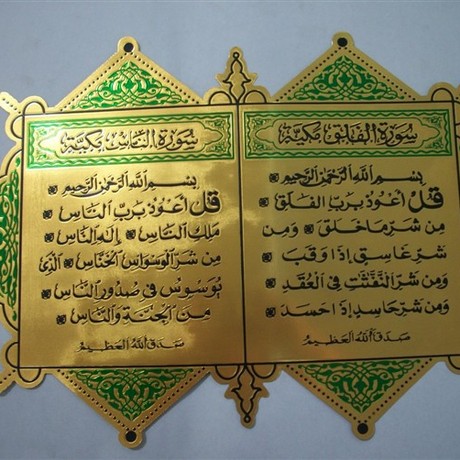 سورة الفلق مكية
بسم الله الرحمن الرحيم
قل أعوذ برب الفلق
من شر ما خلق ۝ ومن
شر غاسق إذا وقب ۝
ومن شر النفثت في العقد ۝
ومن شر حاسد إذا حسد ۝
صدق الله العظيم
سورة الناس مكية
بسم الله الرحمن الرحيم
قل أعوذ برب الناس ۝
ملك الناس ۝ إله الناس ۝
من شر الوسواس الخناس ۝ الذي
يوسوس في صدور الناس ۝
من الجنة والناس ۝
صدق الله العظيم